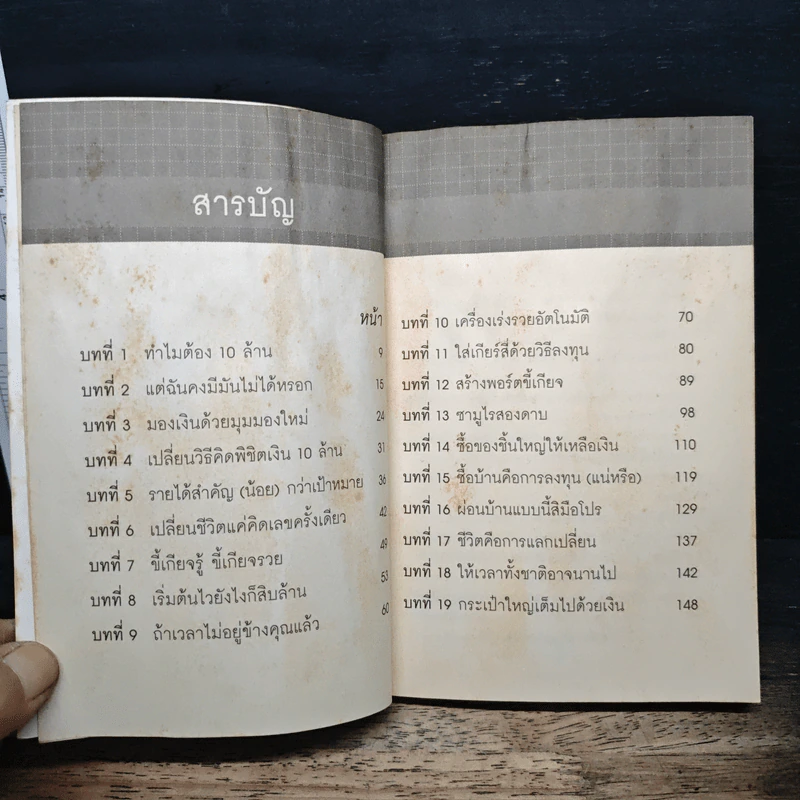 สารบัญ
หน้า
บทที่ 1 ทำไมต้อง 10 ล้าน 9
บทที่ 2 แต่ฉันคงมีมันไม่ได้หรอก 15
บทที่ 3 มองเงินด้วยมุมมองใหม่ 24
บทที่ 4 เปลี่ยนวิธีคิดพิชิตเงิน 10 ล้าน 31
บทที่ 5 รายได้สำคัญ (น้อย) กว่าเป้าหมาย 36
บทที่ 6 เปลี่ยนชีวิตแค่คิดเลขครั้งเดียว 42
บทที่ 7 ขี้เกียจรู้ ขี้เกียจรวย 49
บทที่ 8 เริ่มต้นไวยังไงก็สิบล้าน 53
บทที่ 9 ถ้าเวลาไม่อยู่ข้างคุณแล้ว 60
บทที่ 10 เครื่องเร่งรวยอัตโนมัติ 70
บทที่ 11 ใส่เกียร์สี่ด้วยวิธีลงทุน 80
บทที่ 12 สร้างพอร์ตขี้เกียจ 89
บทที่ 13 ซามูไรสองดาบ 98
บทที่ 14 ซื้อของชิ้นใหญ่ให้เหลือเงิน 110
บทที่ 15 ซื้อบ้านคือการลงทุน (แน่หรือ) 119
บทที่ 16 ผ่อนบ้านแบบนี้สิมือโปร 129
บทที่ 17 ชีวิตคือการแลกเปลี่ยน 137
บทที่ 18 ให้เวลาทั้งชาติอาจนานไป 142
บทที่ 19 กระเป๋าใหญ่เต็มไปด้วยเงิน 148